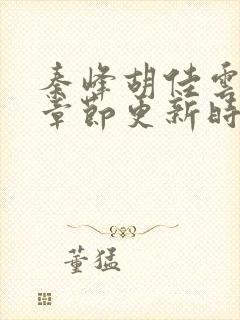 秦峰胡佳雲
章節更新時
董猛